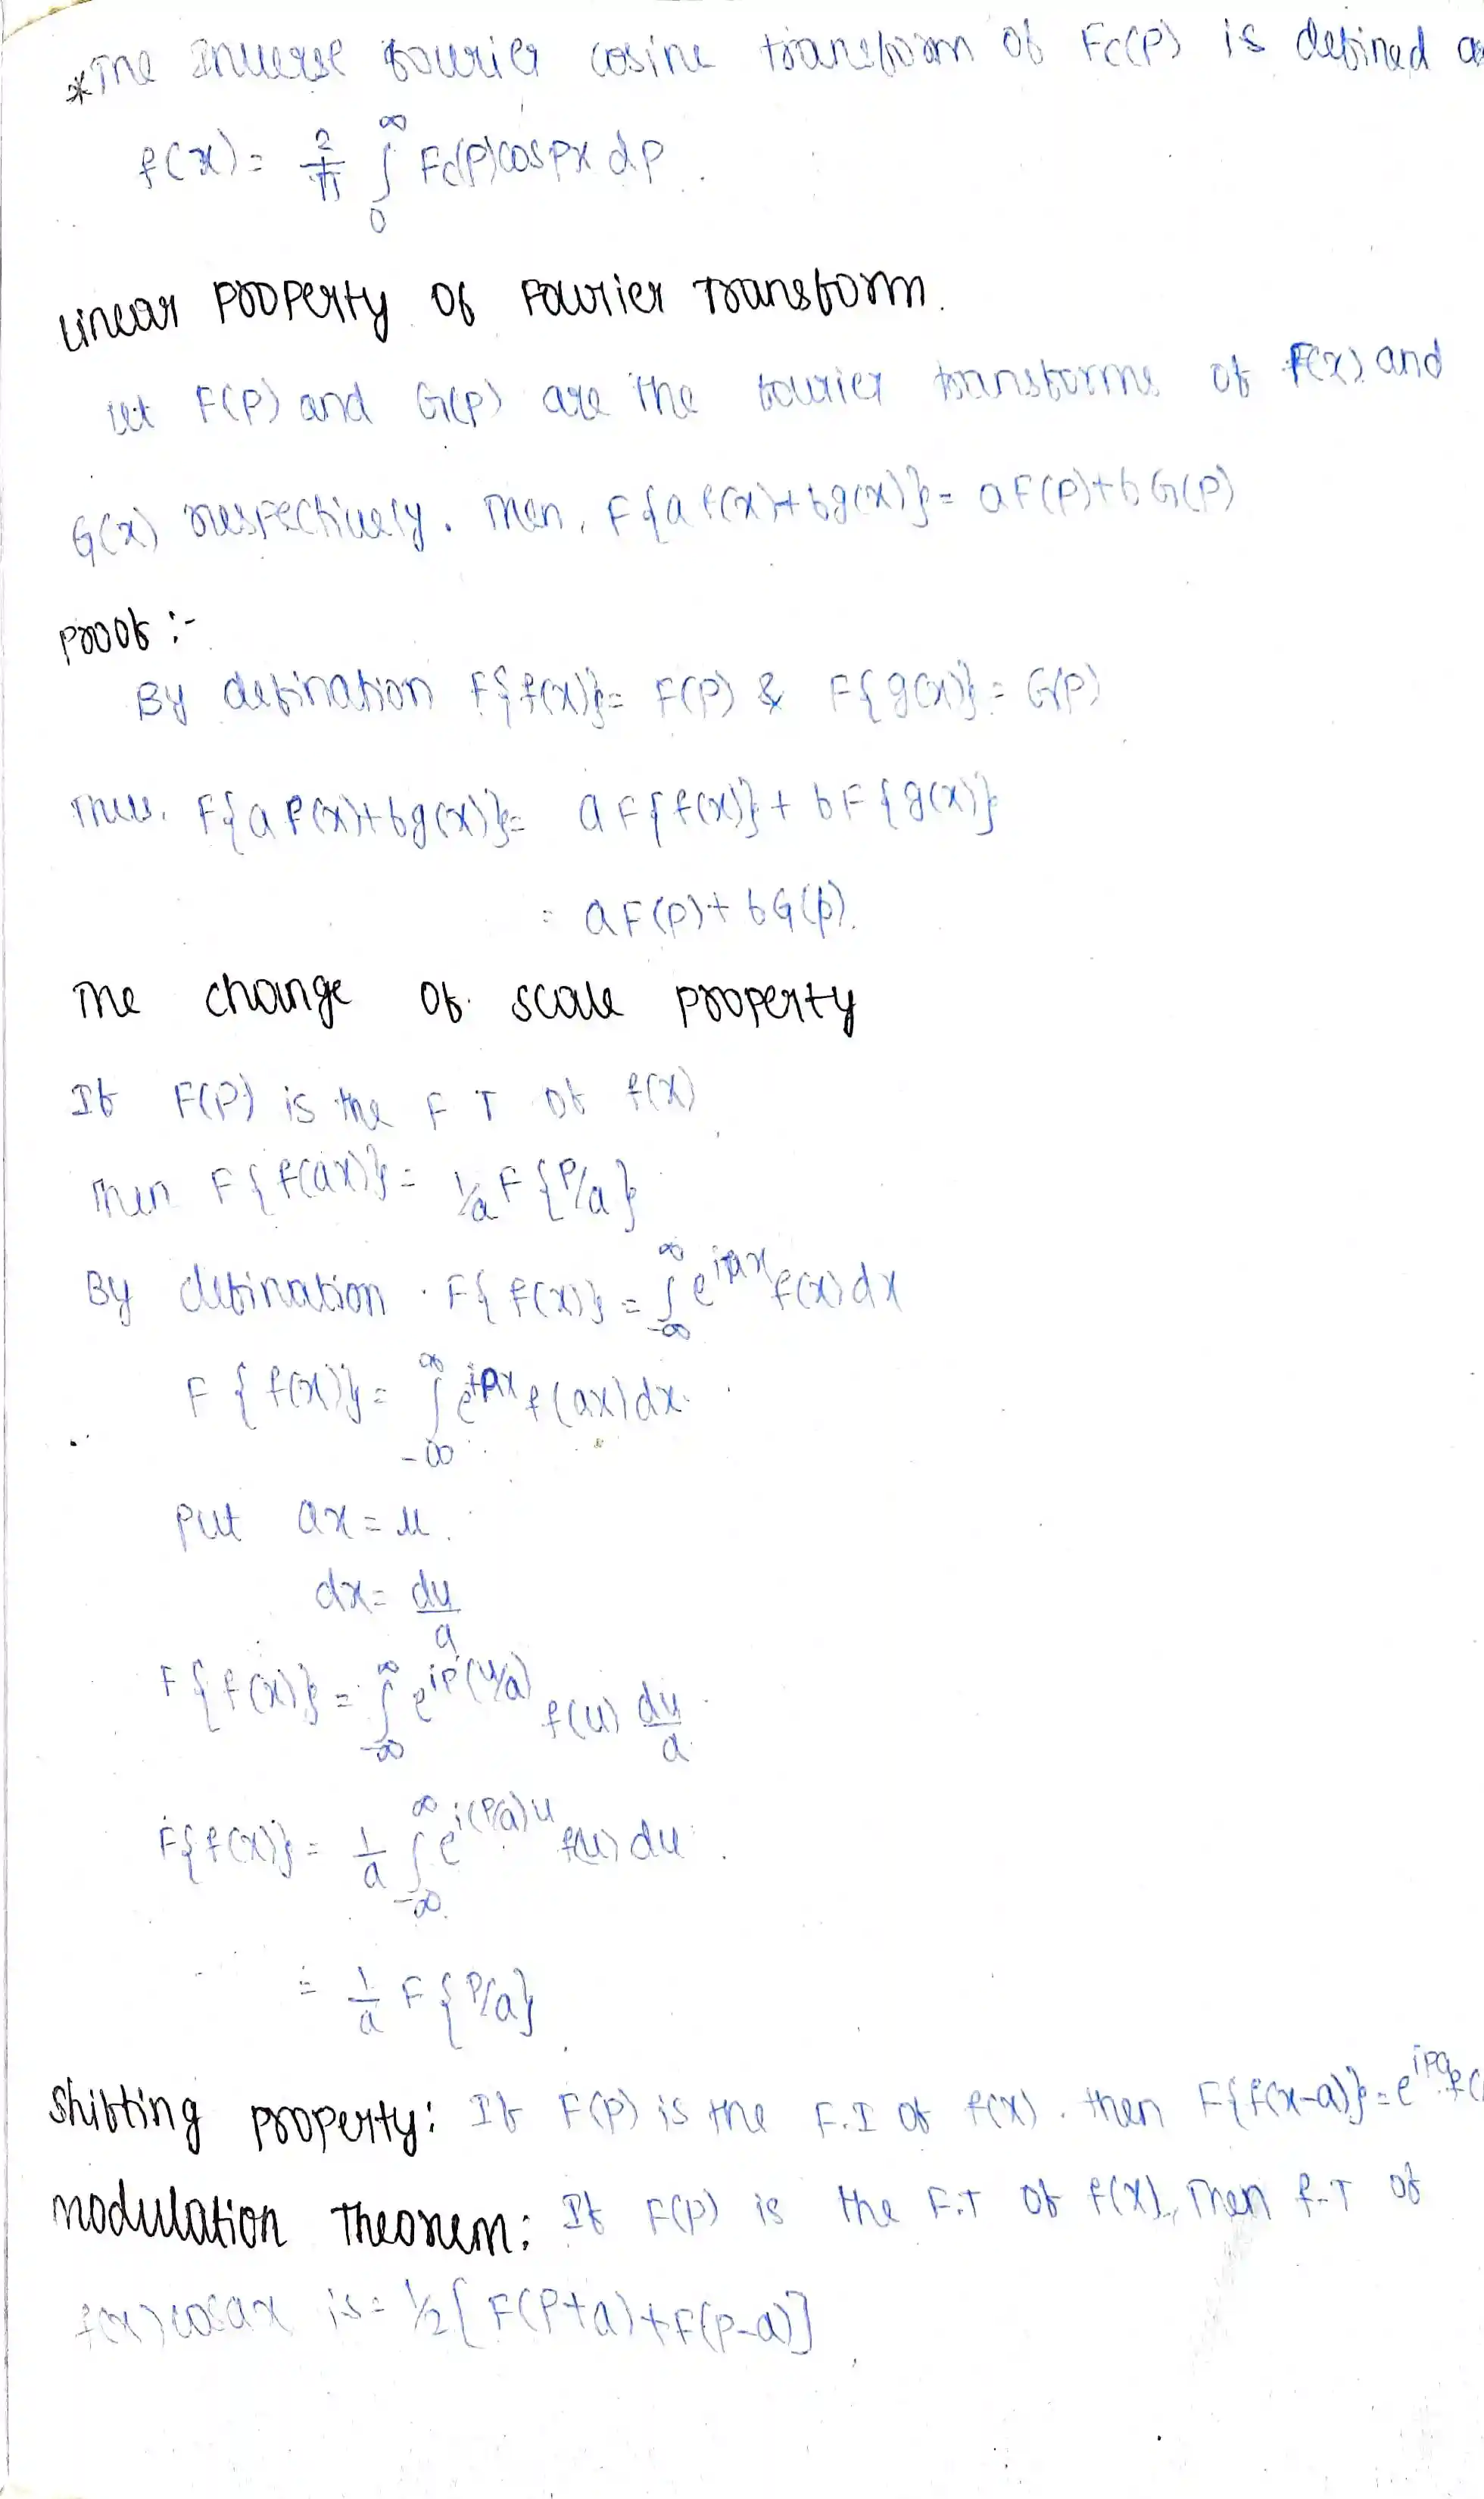 *The Inverse fourier cosine transform of Fc(P) is defined as
f(x) = 2/π ∫₀^∞ Fc(P) cos Px dp.
Linear Property Of Fourier Transform.
Let F(P) and G(P) are the fourier transforms of f(x) and
G(x) respectively. Then, F{a f(x)+bg(x)} = aF(P)+bG(P)
Proof :-
By defination F{f(x)} = F(P) & F{g(x)} = G(P)
Thus. F{a f(x)+bg(x)} = aF{f(x)} + bF{g(x)}
= aF(P)+bG(P).
The change of scale property
If F(P) is the F T of f(x)
Then F{f(ax)} = 1/a F{P/a}
By defination . F{f(x)} = ∫_{-∞}^{∞} e^{ipx} f(x) dx
F{f(x)} = ∫_{-∞}^{∞} e^{ipx} f(ax) dx.
Put ax = u.
dx = du/a
F{f(x)} = ∫_{-∞}^{∞} e^{iP(u/a)} f(u) du/a.
F{f(x)} = 1/a ∫_{-∞}^{∞} e^{i(P/a)u} f(u) du.
= 1/a F{P/a}
Shifting property: If F(P) is the F.I of f(x). then F{f(x-a)} = e^{ipa} F(
Modulation Theorem: If F(P) is the F.T of f(x), Then F.T of
f(x) cosax is = 1/2 [F(P+a)+F(P-a)]